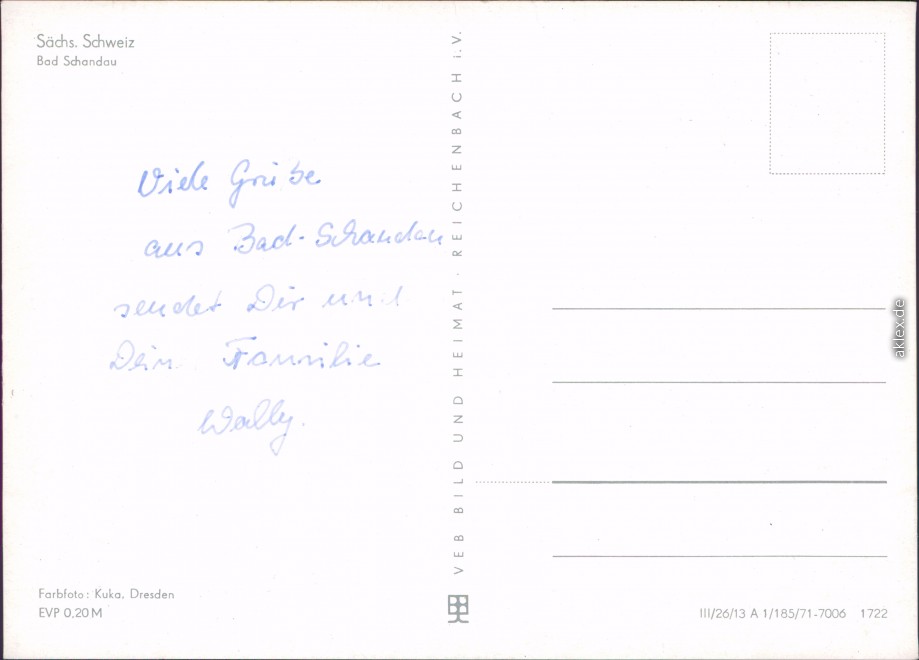 Sächs. Schweiz
Bad Schandau
Viele Grüße
aus Bad-Schandau
sendet Dir und
Dein Familie
Wally.
Farbfoto: Kuka, Dresden
EVP 0,20 M
VEB BILD UND HEIMAT · REICHENBACH i.V.
III/26/13 A 1/185/71-7006 1722
aklex.de